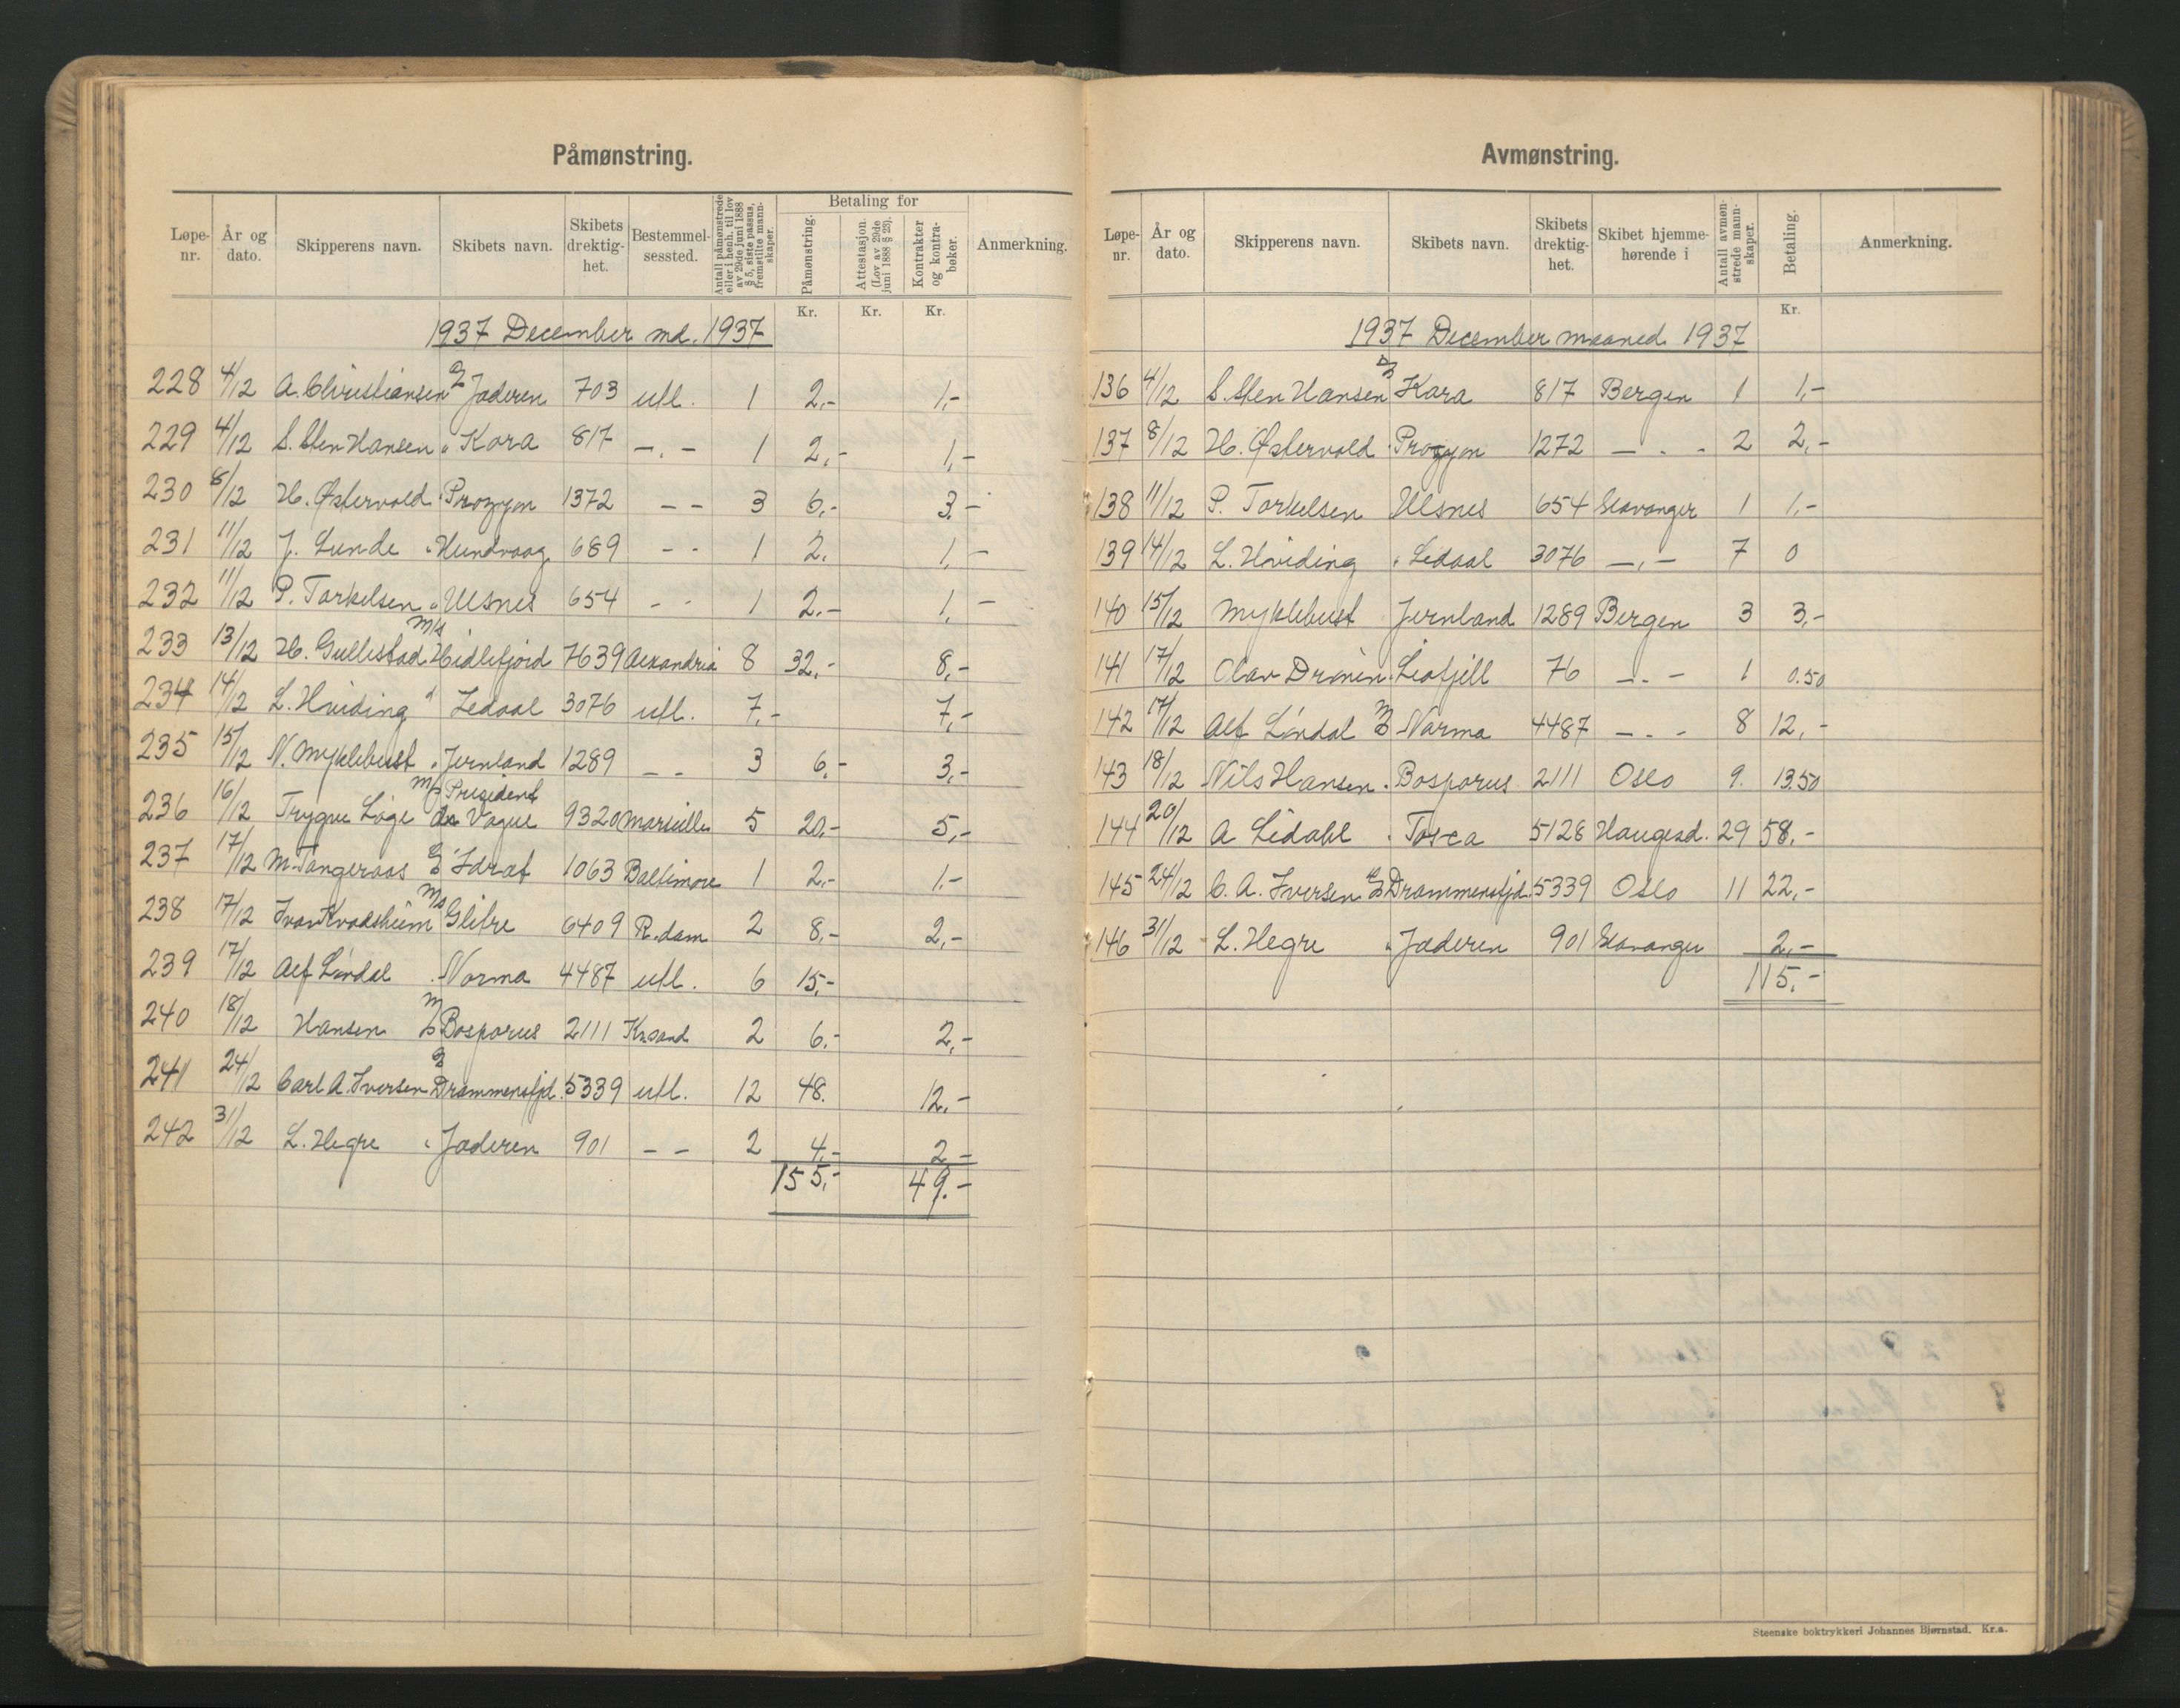 Påmønstring.
Løpe-nr. År og dato. Skipperens navn. Skibets navn. Skibets drektig-het. Bestemmel-sessted. Antall påmønstrede eller i henh. til lov av 29de juni 1888 § 5, siste passus, fremstilte mann-skaper. Betaling for Påmønstring. Attestasjon. (Lov av 29de juni 1888 § 23). Kontrakter og kontra-bøker. Anmerkning.
Kr. Kr. Kr.
1937 December md. 1937
228 4/12 A. Christiansen Jaderen 703 utl. 1 2,- 1,-
229 4/12 S. Sten Hansen " Kora 817 -.- 1 2,- 1,-
230 8/12 H. Østervold " Procyon 1372 - - 3 6,- 3,-
231 11/12 J. Lunde " Hundvaag 689 - - 1 2. 1,-
232 11/12 P. Torkelsen " Ulsnes 654 - - 1 2.- 1,-
233 13/12 H. Gullestad M/s Hidlefjord 7639 Alexandria 8 32,- 8,-
234 14/12 L. Hviding " Ledaal 3076 utl. 7,- 7,-
235 15/12 N. Myklebust " Jernland 1289 - - 3 6,- 3,-
236 16/12 Trygve Løge M/s President de Vogue 9320 Marseille 5 20,- 5,-
237 17/12 M. Tangeraas Idræt 1063 Baltimore 1 2,- 1.-
238 17/12 Ivar Kvadsheim M/s Glitre 6409 R.dam 2 8,- 2,-
239 17/12 Alf Lindal " Norma 4487 utl. 6 15,-
240 18/12 Hansen Bosporus 2111 Kr.sand 2 6,- 2,-
241 24/12 Carl A. Iversen Drammensfjd. 5339 utl. 12 48. 12,-
242 31/12 L. Hegre " Jæderen 901 - - 2 4,- 2,-
155,- 49.-
Avmønstring.
Løpe-nr. År og dato. Skipperens navn. Skibets navn. Skibets drektig-het. Skibet hjemme-hørende i Antall avmøn-strede mann-skaper. Betaling. Anmerkning.
Kr.
1937 December maaned 1937
136 4/12 S. Sten Hansen Kora 817 Bergen 1 1,-
137 8/12 H. Østervold " Procyon 1272 - . - 2 2,-
138 11/12 P. Torkelsen Ulsnes 654 Stavanger 1 1,-
139 14/12 L. Hviding " Ledaal 3076 -.- 7 0
140 15/12 Myklebust Jernland 1289 Bergen 3 3,-
141 17/12 Olav Liafjell 76 -.- 1 0.50
142 17/12 Alf Lindal Norma 4487 -.- 8 12,-
143 18/12 Nils Hansen " Bosporus 2111 Oslo 9. 13.50
144 20/12 A Lidahl " Tosca 5128 Haugesd. 29 58,-
145 24/12 C. A. Iversen Drammensfjd. 5339 Oslo 11 22,-
146 31/12 L. Hegre " Jæderen 901 Stavanger 2,-
115,-
Steenske boktrykkeri Johannes Bjørnstad. Kr.a.